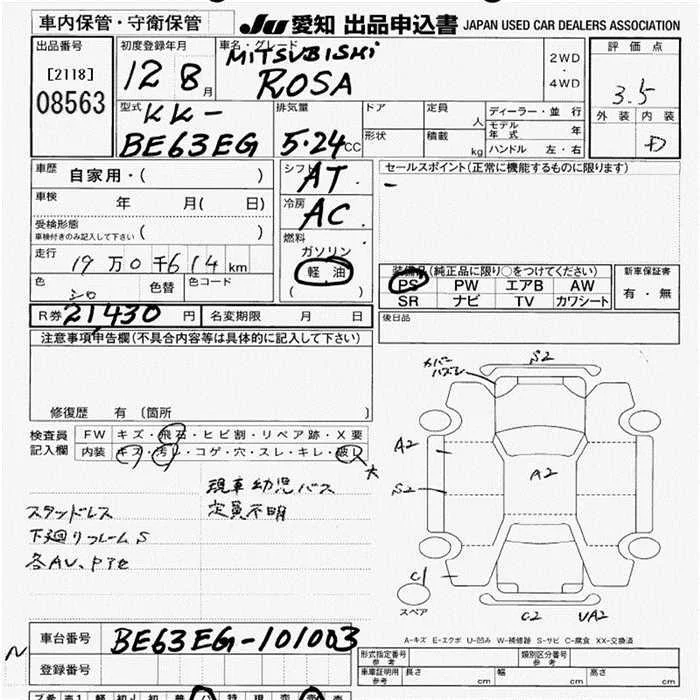 車内保管・守衛保管
JU 愛知 出品申込書 JAPAN USED CAR DEALERS ASSOCIATION
出品番号
[2118]
08563
初度登録年月
12 8月
車名・グレード
MITSUBISHI
ROSA
2WD
・
4WD
評価点
3.5
外装 内装
D
型式
KK-
BE63EG
排気量
5.24cc
ドア
定員
人
形状
積載
kg
ディーラー・並行
モデル年式 年
ハンドル 左・右
車歴
自家用・( )
車検
年 月( 日)
受検形態
車検付きのみ記入して下さい ( )
走行
19万0千614km
色
シロ
色替
色コード
シフト
AT
冷房
AC
燃料
ガソリン・
軽油
( )
セールスポイント(正常に機能するものに限ります)
-
装備品(純正品に限り○をつけてください)
PS PW エアB AW
SR ナビ TV カワシート
新車保証書
有・無
R券 21,430 円
名変期限 月 日
後日品
注意事項申告欄(不具合内容等は具体的に記入して下さい)
修復歴 有 〔箇所 〕
検査員
記入欄
FW キズ・飛石・ヒビ割・リペア跡・X要
内装 キズ・汚レ・コゲ・穴・スレ・キレ・破レ
大
現車幼児バス
定員不明
スタッドレス
下廻りフレームS
各AU、P1e
カバー
ハズレ
S2
A2
S2
A2
C1
スペア
C2
UA2
A-キズ E-エクボ U-凹み W-補修跡 S-サビ C-腐食 XX-交換済
N
車台番号
BE63EG-101003
登録番号
形式指定番号
参考
類別区分番号
参考
車庫証明用
参考
長さ cm
幅 cm
高さ cm